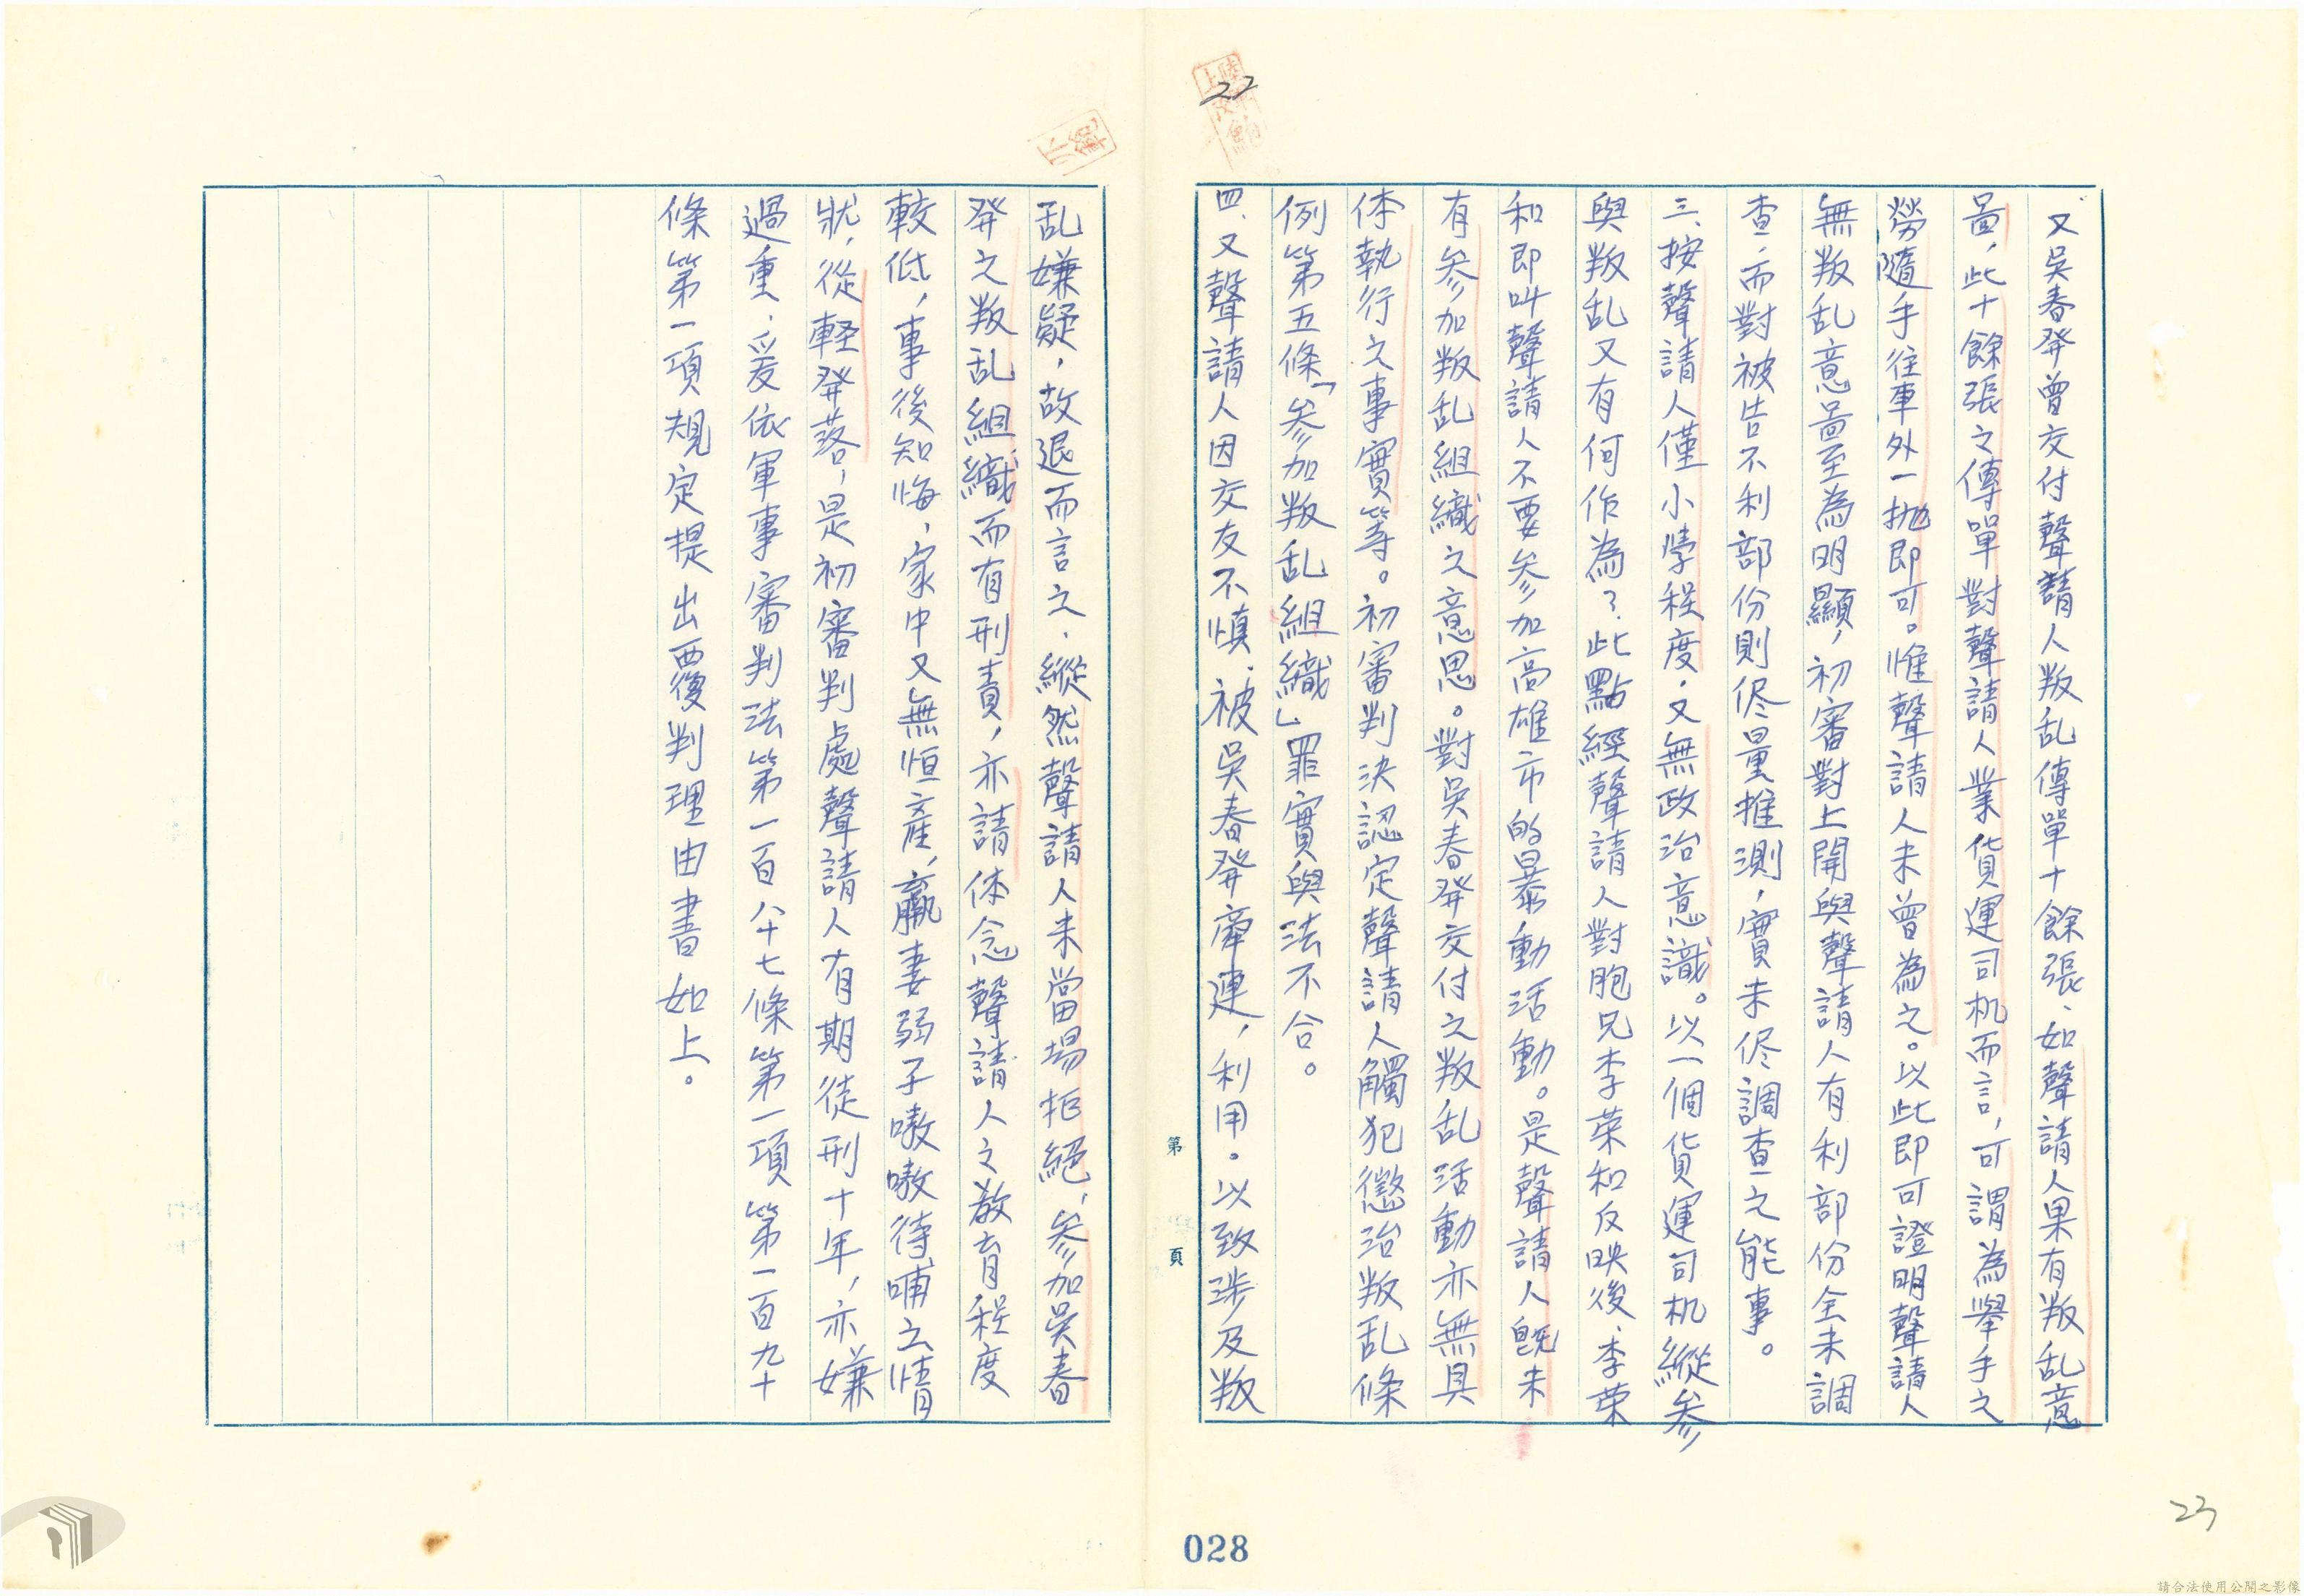 又吳春發曾交付聲請人叛乱傳單十餘張、如聲請人果有叛乱意
圖，此十餘張之傳單對聲請人業貨運司机而言，可謂為舉手之
勞隨手往車外一拋即可。惟聲請人未曾為之。以此即可證明聲請人
無叛乱意圖至為明顯，初審對上開與聲請人有利部份全未調
查，而對被告不利部份則侭量推測，實未侭調查之能事。
三、按聲請人僅小學程度，又無政治意識。以一個貨運司机縱參
與叛乱又有何作為？此點經聲請人對胞兄李荣和反映後、李荣
和即叫聲請人不要參加高雄市的暴動活動。是聲請人既未
有參加叛乱組織之意思。對吳春發交付之叛乱活動亦無具
体執行之事實等。初審判決認定聲請人觸犯懲治叛乱條
例第五條「參加叛乱組織」罪實與法不合。
四、又聲請人因交友不慎，被吳春發牽連，利用。以致涉及叛
乱嫌疑，故退而言之，縱然聲請人未當場拒絕，參加吳春
發之叛乱組織而有刑責，亦請体念聲請人之教育程度
較低，事後知悔，家中又無恒產，羸妻弱子嗷嗷待哺之情
狀，從輕發落，是初審判處聲請人有期徒刑十年，亦嫌
過重，爰依軍事審判法第一百八十七條第一項第一百九十
條第一項規定提出覆判理由書如上。
第 頁
22
23
028
請合法使用公開之影像